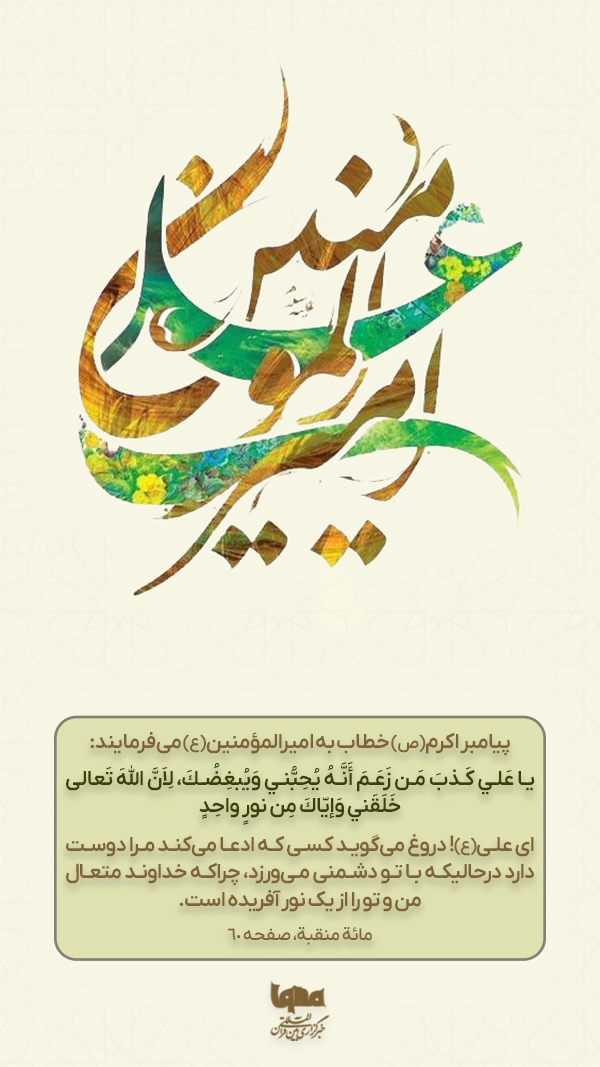 امیر المؤمنین علی
علیه السلام
پیامبر اکرم(ص) خطاب به امیرالمؤمنین(ع) می‌فرمایند:
یا عَلي کَذبَ مَن زَعَمَ أَنَّهُ یُحِبُّني وَیُبغِضُكَ، لِاَنَّ اللّهَ تَعالی
خَلَقَني وَإیّاكَ مِن نورٍ واحِدٍ
ای علی(ع)! دروغ می‌گوید کسی که ادعا می‌کند مرا دوست
دارد درحالیکه با تو دشمنی می‌ورزد، چراکه خداوند متعال
من و تو را از یک نور آفریده است.
مائة منقبة، صفحه ٦٠
iqna
خبرگزاری بین المللی قرآن